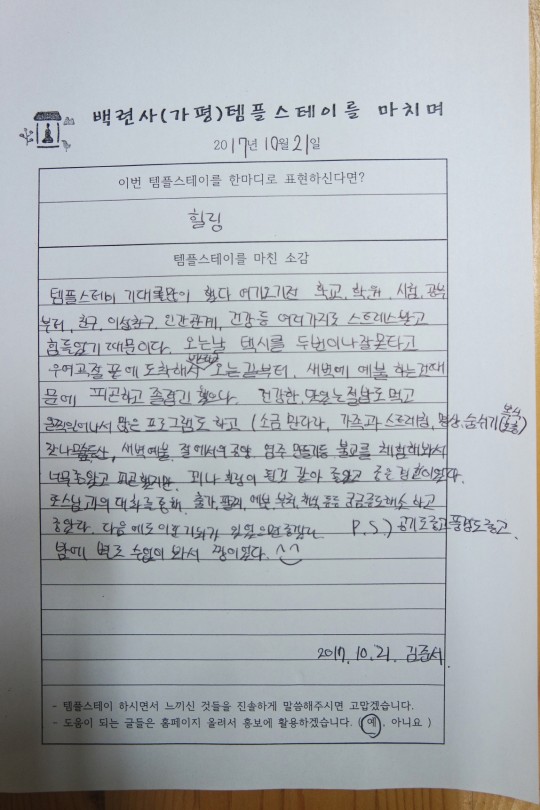 백련사(가평)템플스테이를 마치며
2017년 10월 21일
이번 템플스테이를 한마디로 표현하신다면?
힐링
템플스테이를 마친 소감
템플스테이 기대 많이 했다 여기오기전 학교, 학원, 시험, 공부
부터, 친구, 이성친구, 인간관계, 건강등 여러가지로 스트레스받고
힘들었기 때문이다. 오는날 택시를 두번이나 잘못타고
우여곡절 끝에 도착해서 오는길부터, 새벽에 예불 하는것때
문에 피곤하고 졸렸긴 했다. 건강한, 맛있는 절밥도 먹고
일찍일어나서 많은 프로그램도 하고 (소금 만다라, 가족과 스트레칭, 명상, 숨쉬기(복식호흡)
잣나무 등산, 새벽예불, 절에서의 공양, 염주 만들기등 불교를 체험해봐서
너무 좋았고 피곤했지만, 꽤나 힐링이 된것 같아 좋았고 좋은 경험이었다.
또 스님과의 대화를 통해, 출가, 예불, 등등 궁금증도 해소하고
좋았다. 다음에도 이런 기회가 있었으면 좋겠다. P.S.) 공기도 좋고 풍경도 좋고
밤에 별도 수없이 봐서 짱이었다. ^^
2017. 10. 21. 김준서.
- 템플스테이 하시면서 느끼신 것들을 진솔하게 말씀해주시면 고맙겠습니다.
- 도움이 되는 글들은 홈페이지 올려서 홍보에 활용하겠습니다. ( 예, 아니요 )